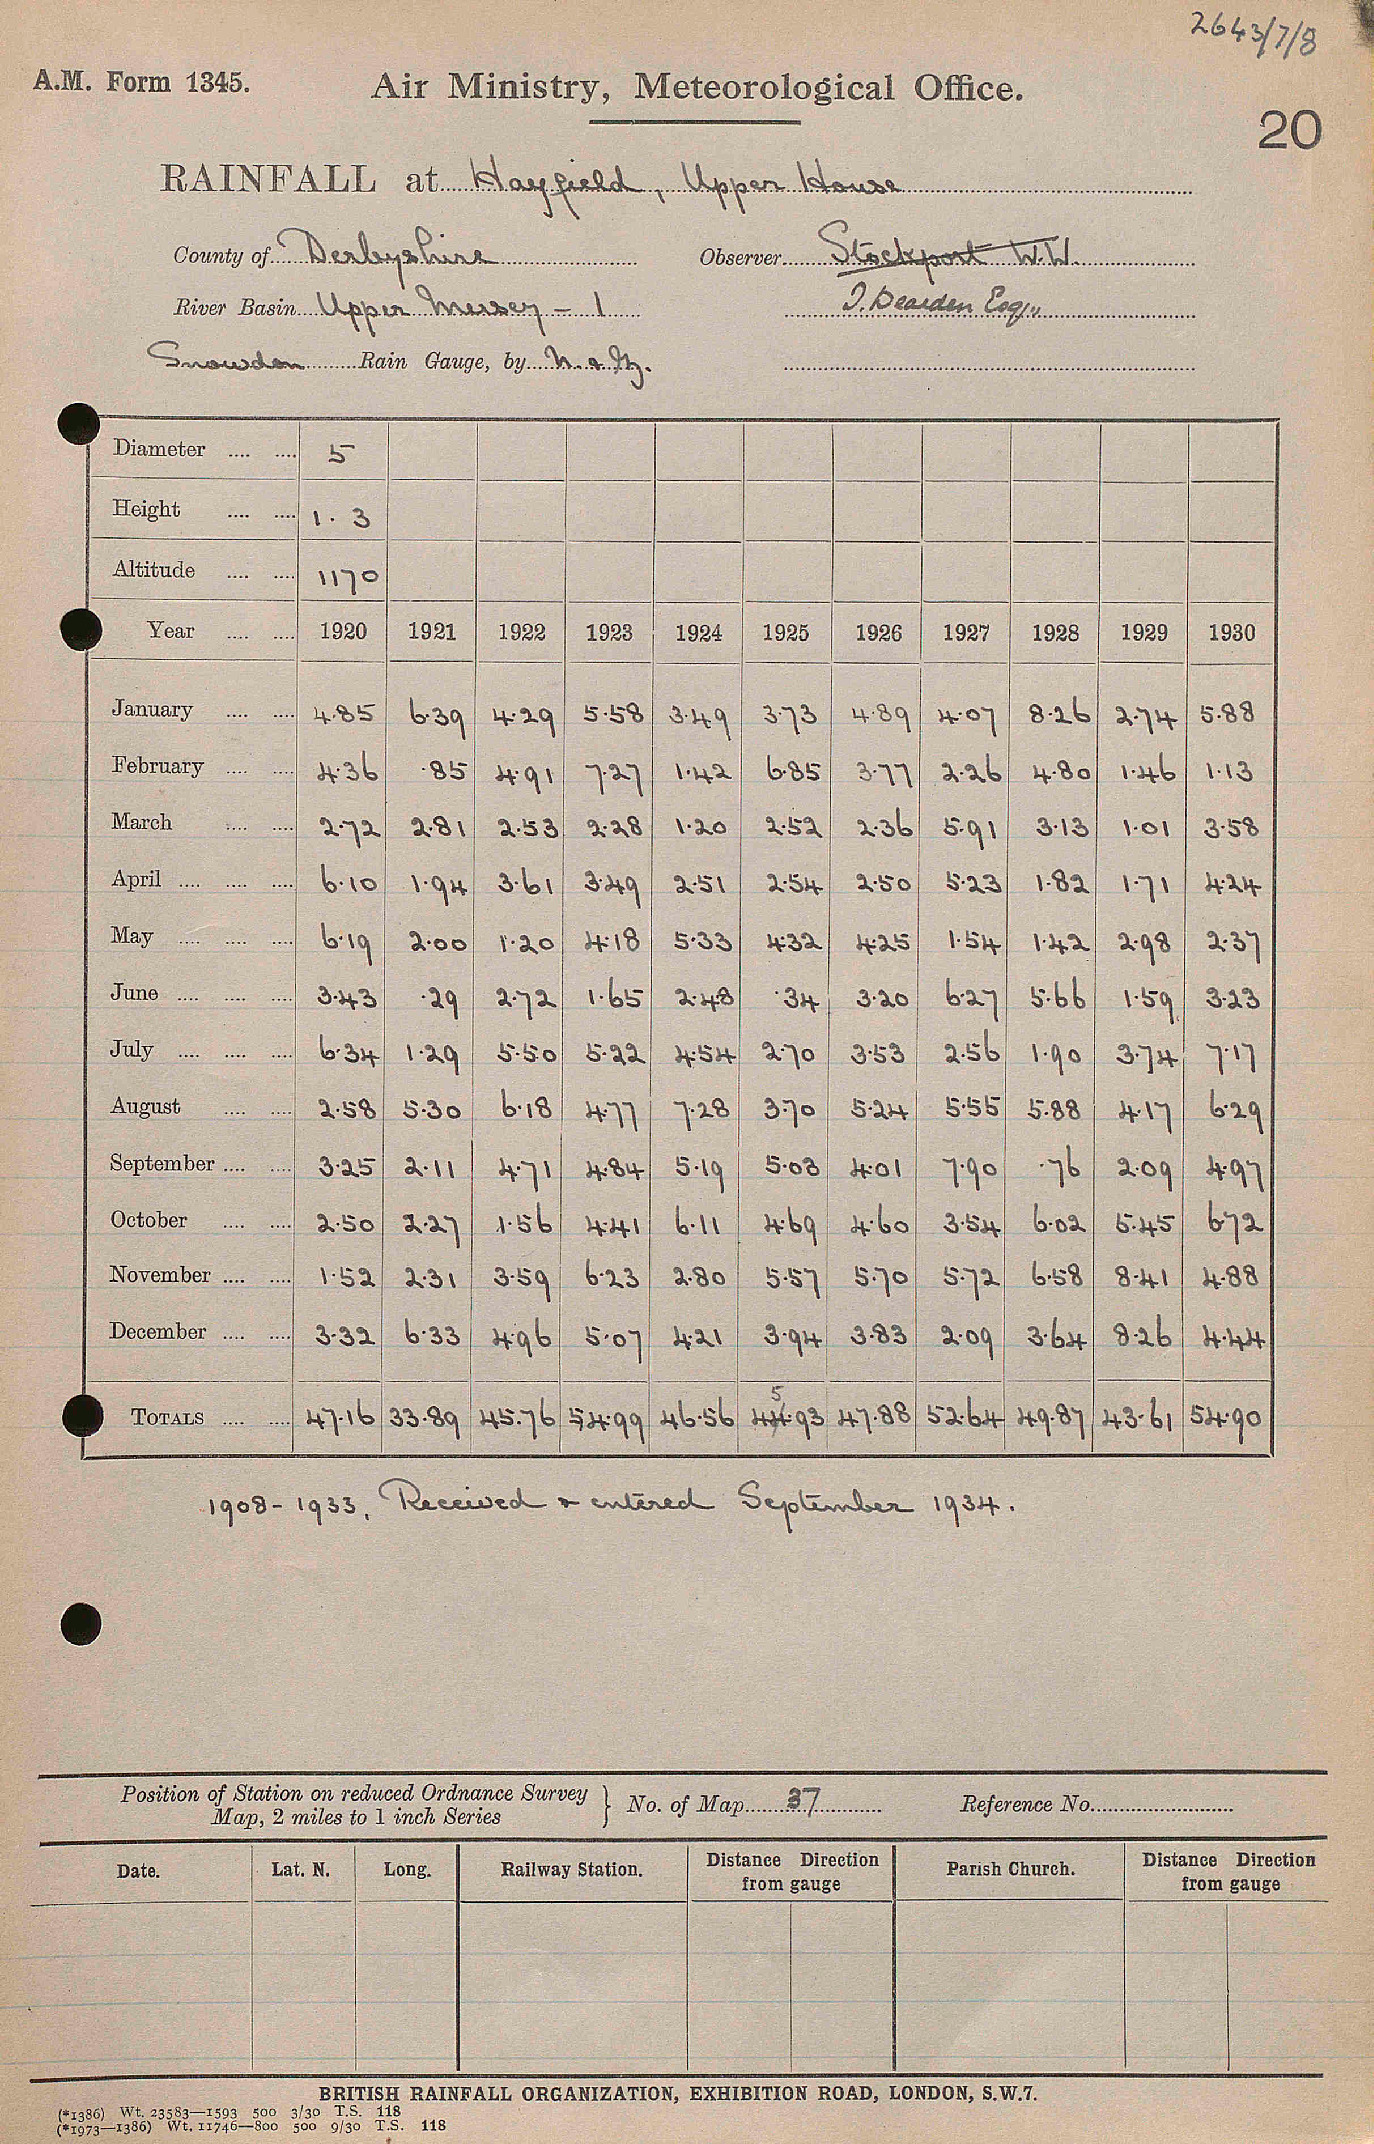 2643/7/8
A.M. Form 1345. Air Ministry, Meteorological Office.
20
RAINFALL at Hayfield, Upper House
County of Derbyshire Observer Stockport W.W.
River Basin Upper Mersey - 1 J. Dearden Esq.,
Snowdon Rain Gauge, by N. & Z.
Diameter .... .... 5
Height .... .... 1.3
Altitude .... .... 1170
Year .... .... 1920 1921 1922 1923 1924 1925 1926 1927 1928 1929 1930
January .... .... 4.85 6.39 4.29 5.58 3.49 3.73 4.89 4.07 8.26 2.74 5.88
February .... .... 4.36 .85 4.91 7.27 1.42 6.85 3.77 2.26 4.80 1.46 1.13
March .... .... 2.72 2.81 2.53 2.28 1.20 2.52 2.36 5.91 3.13 1.01 3.58
April .... .... .... 6.10 1.94 3.61 3.49 2.51 2.54 2.50 5.23 1.82 1.71 4.24
May .... .... .... 6.19 2.00 1.20 4.18 5.33 4.32 4.25 1.54 1.42 2.98 2.37
June .... .... .... 3.43 .29 2.72 1.65 2.48 .34 3.20 6.27 5.66 1.59 3.23
July .... .... .... 6.34 1.29 5.50 5.22 4.54 2.70 3.53 2.56 1.90 3.74 7.17
August .... .... 2.58 5.30 6.18 4.77 7.28 3.70 5.24 5.55 5.88 4.17 6.29
September .... .... 3.25 2.11 4.71 4.84 5.19 5.03 4.01 7.90 .76 2.09 4.97
October .... .... 2.50 2.27 1.56 4.41 6.11 4.69 4.60 3.54 6.02 5.45 6.72
November .... .... 1.52 2.31 3.59 6.23 2.80 5.57 5.70 5.72 6.58 8.41 4.88
December .... .... 3.32 6.33 4.96 5.07 4.21 3.94 3.83 2.09 3.64 8.26 4.44
5
TOTALS .... .... 47.16 33.89 45.76 54.99 46.56 44.93 47.88 52.64 49.87 43.61 54.90
1908-1933, Received & entered September 1934.
Position of Station on reduced Ordnance Survey
Map, 2 miles to 1 inch Series } No. of Map 37 Reference No.
Date. Lat. N. Long. Railway Station. Distance Direction from gauge Parish Church. Distance Direction from gauge
BRITISH RAINFALL ORGANIZATION, EXHIBITION ROAD, LONDON, S.W.7.
(*1386) Wt. 23583—1593 500 3/30 T.S. 118
(*1973—1386) Wt. 11746—800 500 9/30 T.S. 118